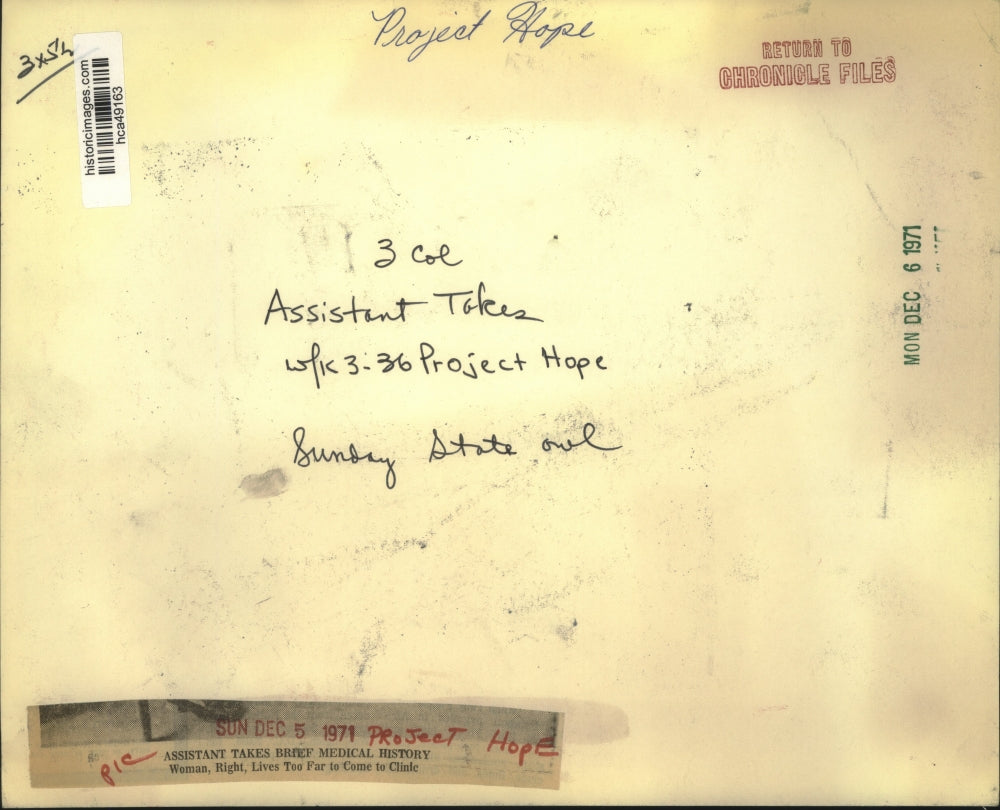 Project Hope
RETURN TO
CHRONICLE FILES
historicimages.com
hca49163
MON DEC 6 1971
3 col
Assistant Takes
w/k 3-36 Project Hope
Sunday State owl
SUN DEC 5 1971 PROJECT HOPE
pic
ASSISTANT TAKES BRIEF MEDICAL HISTORY
Woman, Right, Lives Too Far to Come to Clinic